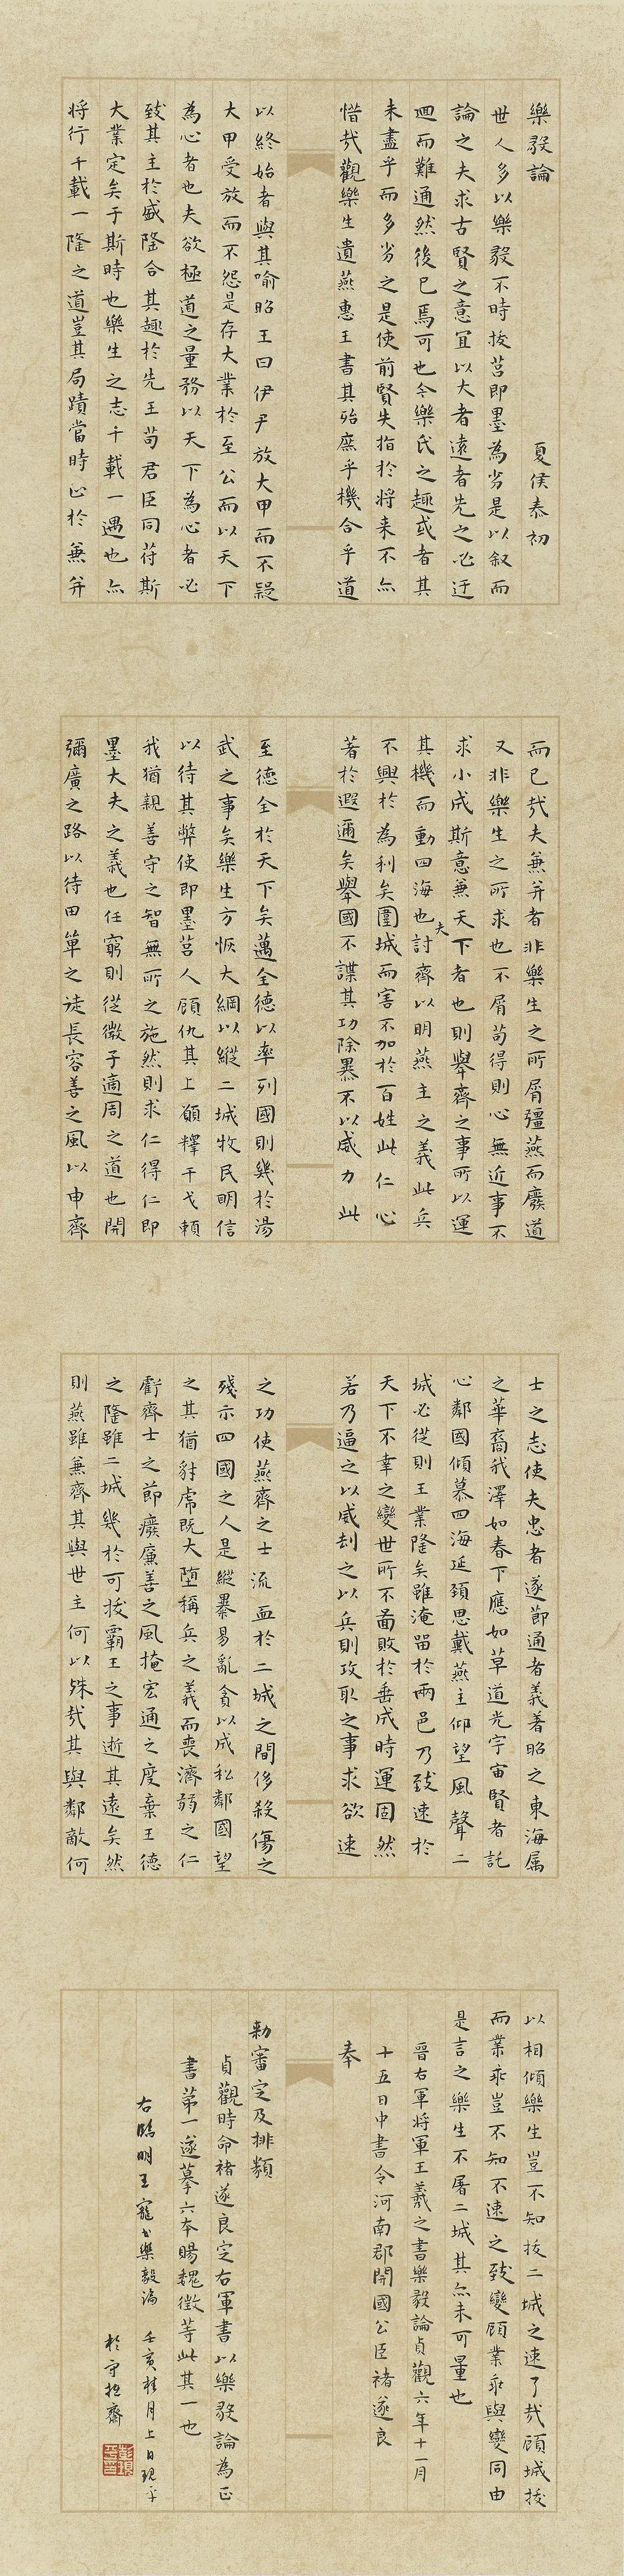 樂毅論
夏侯泰初
世人多以樂毅不時拔莒即墨為劣是以叙而
論之夫求古賢之意宜以大者遠者先之必迂
迴而難通然後已焉可也今樂氏之趣或者其
未盡乎而多劣之是使前賢失指於將来不亦
惜哉觀樂生遺燕惠王書其殆庶乎機合乎道
以終始者與其喻昭王曰伊尹放大甲而不疑
大甲受放而不怨是存大業於至公而以天下
為心者也夫欲極道之量務以天下為心者必
致其主於盛隆合其趣於先王苟君臣同苻斯
大業定矣于斯時也樂生之志千載一遇也亦
将行千載一隆之道豈其局蹟當時止於兼并
而已哉夫兼并者非樂生之所屑彊燕而廢道
又非樂生之所求也不屑苟得則心無近事不
求小成斯意兼天下者也則舉齊之事所以運
其機而動四海也夫討齊以明燕主之義此兵
不興於為利矣圍城而害不加於百姓此仁心
著於遐邇矣舉國不謀其功除暴不以威力此
至德全於天下矣邁全德以率列國則幾於湯
武之事矣樂生方恢大綱以縱二城牧民明信
以待其弊使即墨莒人顧仇其上願釋干戈賴
我猶親善守之智無所之施然則求仁得仁即
墨大夫之義也任窮則從微子適周之道也開
彌廣之路以待田單之徒長容善之風以申齊
士之志使夫忠者遂節通者義著昭之東海属
之華裔我澤如春下應如草道光宇宙賢者託
心鄰國傾慕四海延頸思戴燕主仰望風聲二
城必從則王業隆矣雖淹留於兩邑乃致速於
天下不幸之變世所不啚敗於垂成時運固然
若乃逼之以威刦之以兵則攻取之事求欲速
之功使燕齊之士流血於二城之間侈殺傷之
殘示四國之人是縱暴易亂貪以成私鄰國望
之其猶豺虎既大堕稱兵之義而喪濟弱之仁
虧齊士之節癈廉善之風掩宏通之度棄王德
之隆雖二城幾於可拔霸王之事逝其遠矣然
則燕雖兼齊其與世主何以殊哉其與鄰敵何
以相傾樂生豈不知拔二城之速了哉顧城拔
而業乖豈不知不速之致變顧業乖與變同由
是言之樂生不屠二城其亦未可量也
晉右軍将軍王羲之書樂毅論貞觀六年十一月
十五日中書令河南郡開國公臣褚遂良
奉
勅審定及排類
貞觀時命褚遂良定右軍書以樂毅論為正
書第一遂摹六本賜魏徵等此其一也
右臨明王寵書樂毅論 壬寅桂月上日現平
於守拙齋